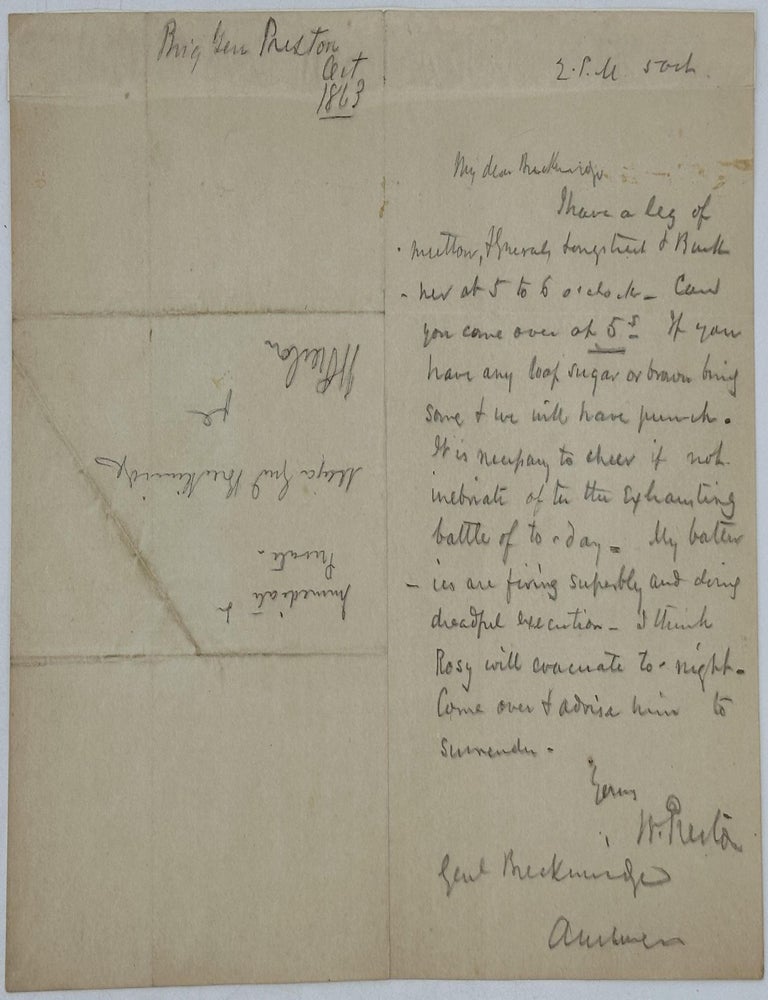 Brig Gen Preston
Oct
1863
2. P.M. 5 Oct.
My dear Breckinridge
I have a leg of
mutton, & Generals Longstreet & Buck
-ner at 5 to 6 o'clock - Can
you come over at 5
If you
have any loaf sugar or brown bring
some & we will have punch.
It is necessary to cheer if not
inebriate after the exhausting
battle of to-day = My batter
-ies are firing superbly and doing
dreadful execution - I think
Rosy will evacuate to-night -
Come over & advise him to
surrender -
Yours
W. Preston
Genl Breckinridge
Answer
Immediate &
Private -
Major Genl Breckinridge
W Preston